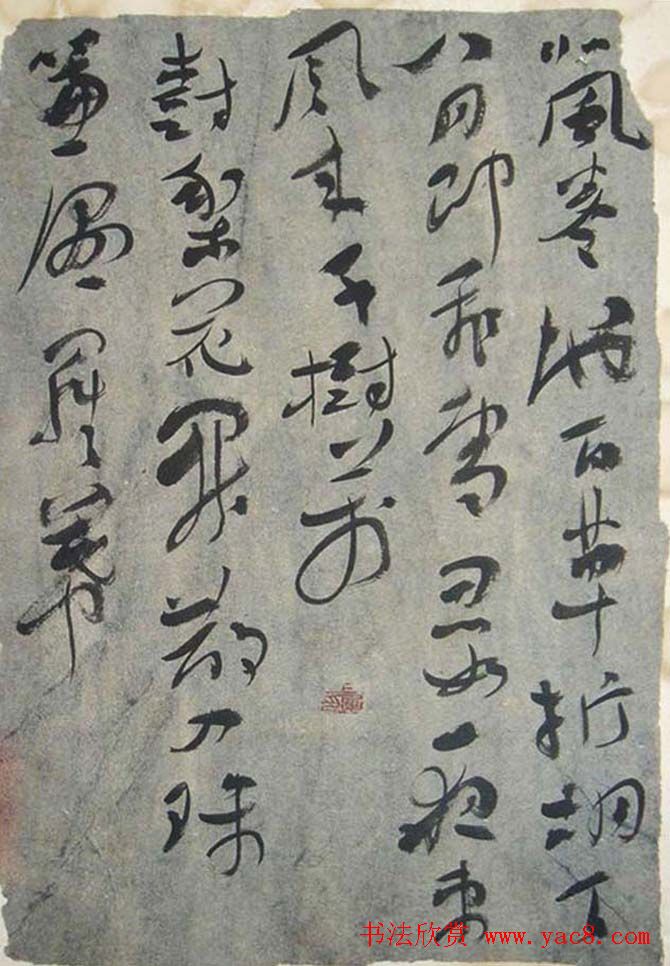 北風卷地百草折胡天
八月即飛雪忽如一夜春
風来千樹萬
樹梨花開散入珠
簾濕羅幕
书法欣赏 www.yac8.com